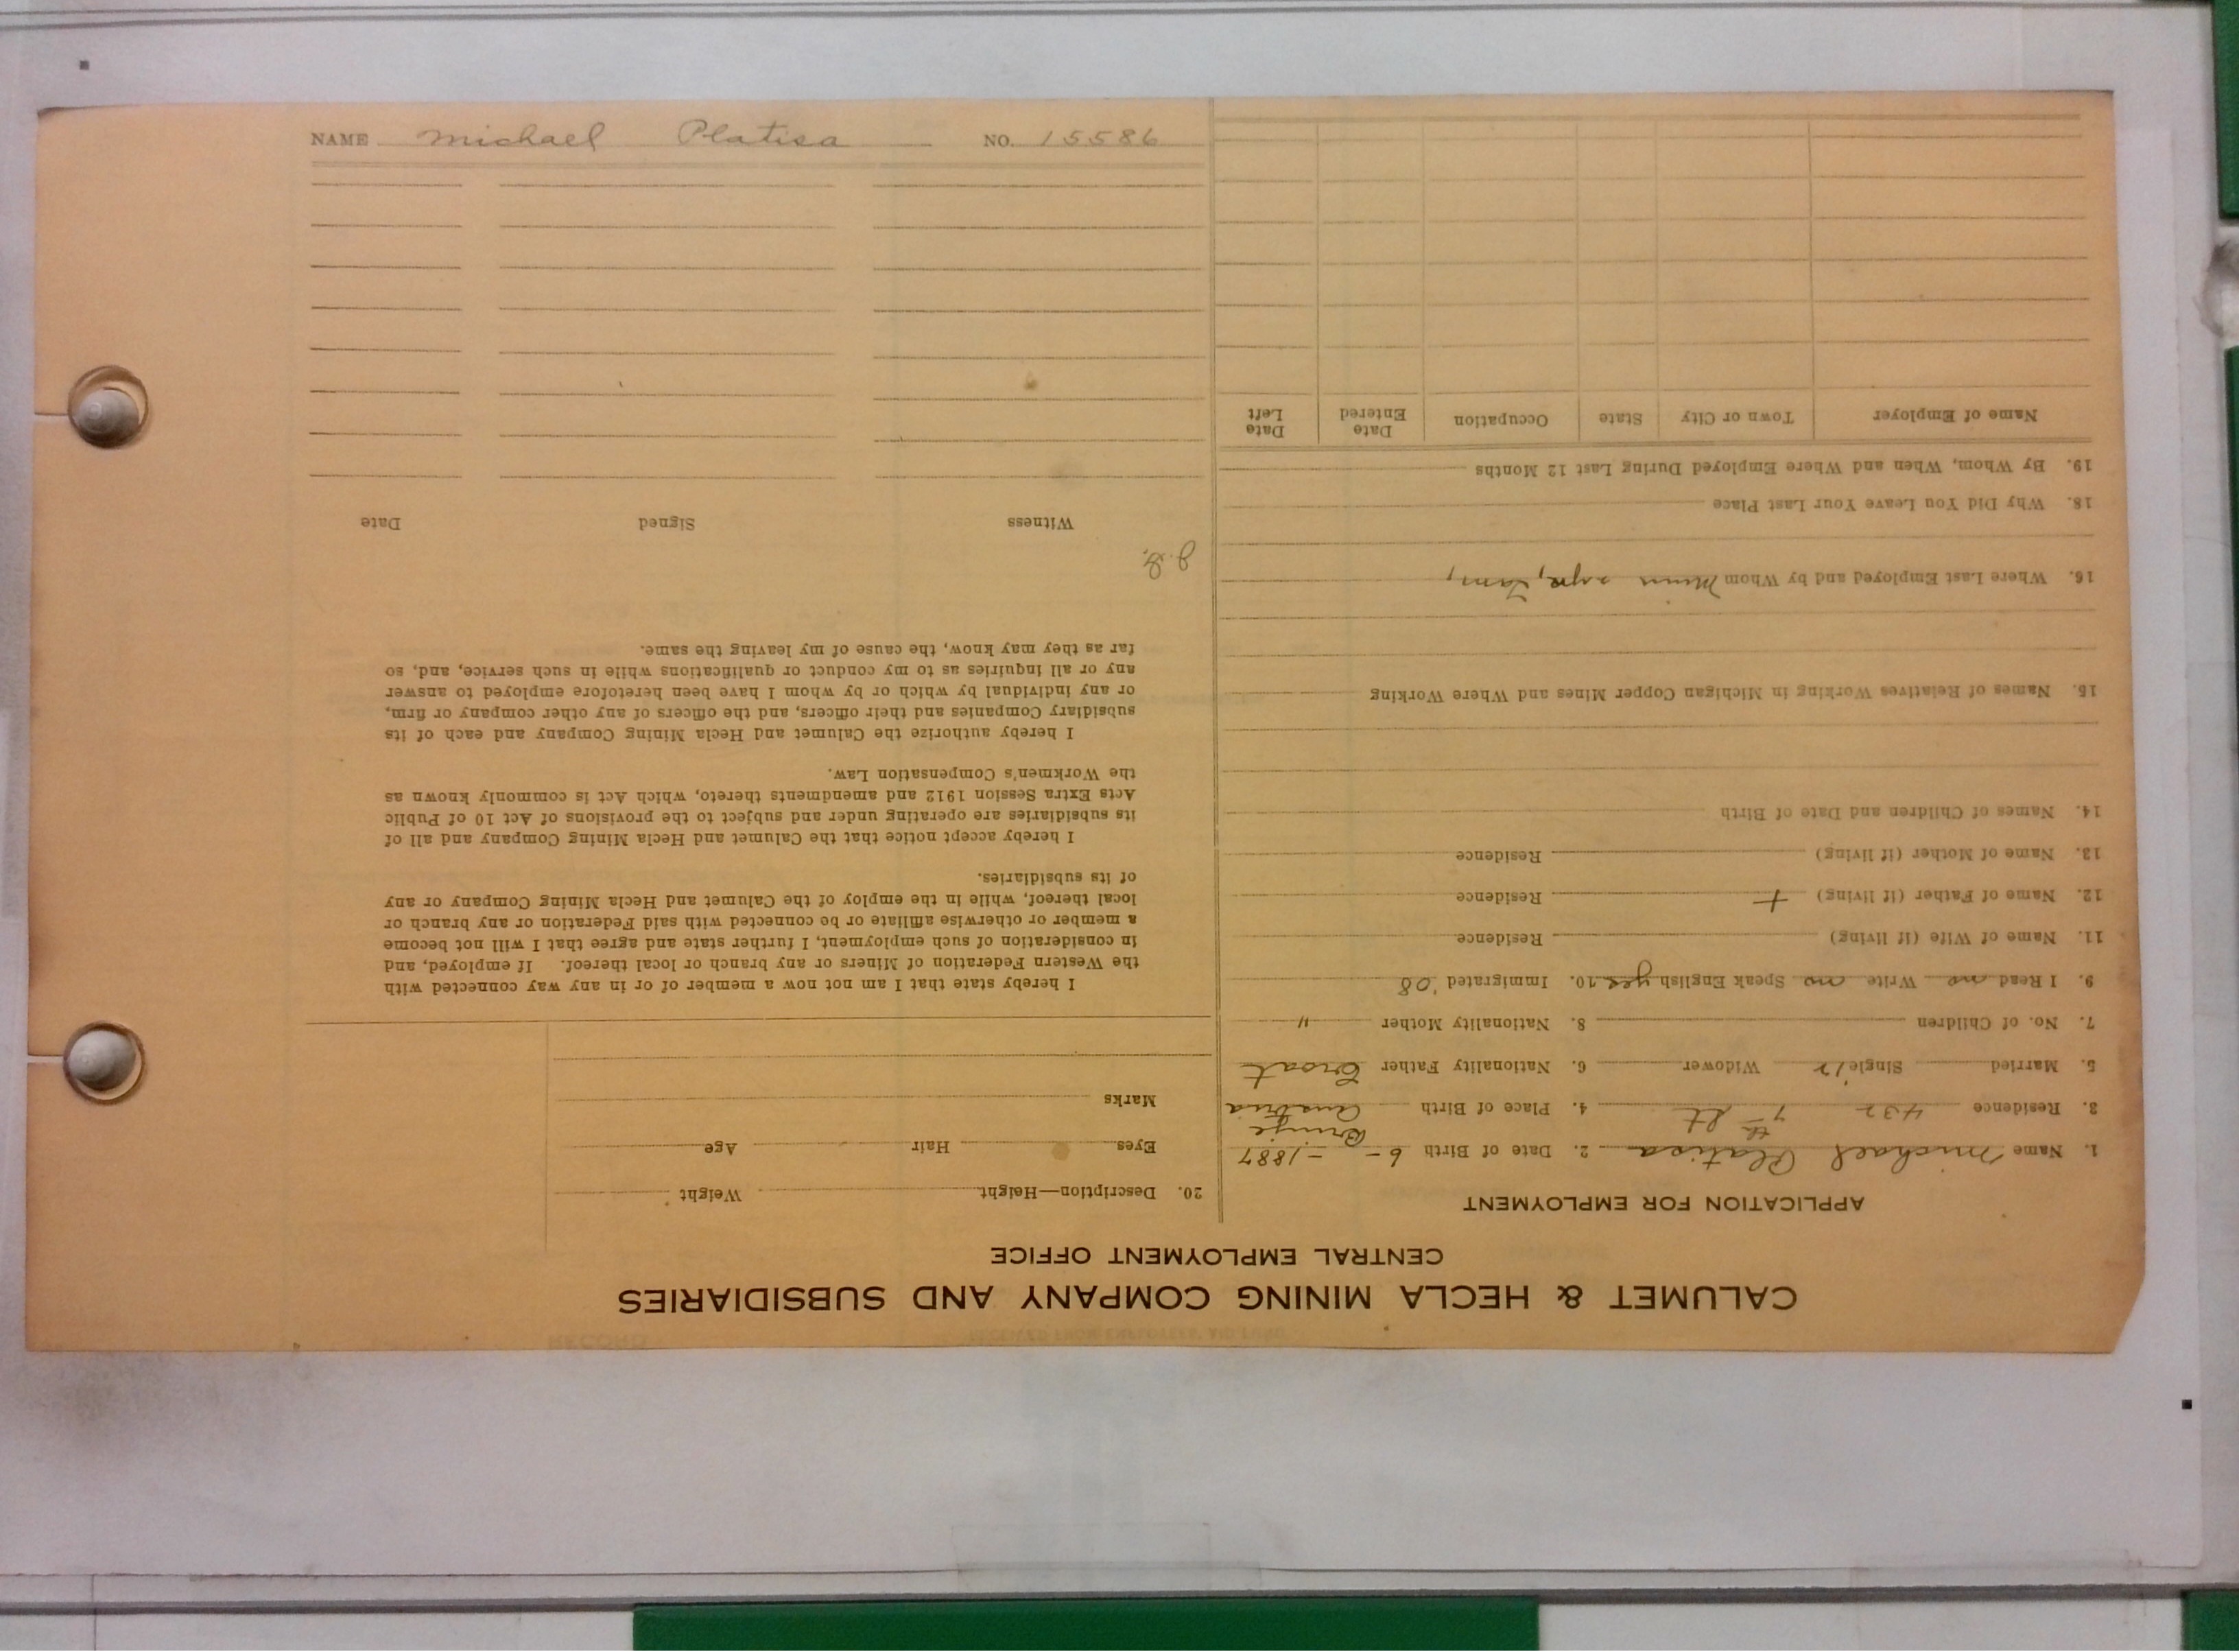 NAME Michael Platisa NO. 15586
CALUMET & HECLA MINING COMPANY AND SUBSIDIARIES
CENTRAL EMPLOYMENT OFFICE
APPLICATION FOR EMPLOYMENT
1. Name Michael Platisa 2. Date of Birth 6 - - 1887
3. Residence 432 7th St 4. Place of Birth Austria
5. Married Single Widower 6. Nationality Father Croat
7. No. of Children 8. Nationality Mother "
9. I Read no Write no Speak English yes 10. Immigrated '08
11. Name of Wife (if living) Residence
12. Name of Father (if living) + Residence
13. Name of Mother (if living) Residence
14. Names of Children and Date of Birth
15. Names of Relatives Working in Michigan Copper Mines and Where Working
16. Where Last Employed and by Whom Minn
18. Why Did You Leave Your Last Place
19. By Whom, When and Where Employed During Last 12 Months
Name of Employer Town or City State Occupation Date Entered Date Left
20. Description—Height Weight
Eyes Hair Age
Marks
I hereby state that I am not now a member of or in any way connected with
the Western Federation of Miners or any branch or local thereof. If employed, and
in consideration of such employment, I further state and agree that I will not become
a member or otherwise affiliate or be connected with said Federation or any branch or
local thereof, while in the employ of the Calumet and Hecla Mining Company or any
of its subsidiaries.
I hereby accept notice that the Calumet and Hecla Mining Company and all of
its subsidiaries are operating under and subject to the provisions of Act 10 of Public
Acts Extra Session 1912 and amendments thereto, which Act is commonly known as
the Workmen's Compensation Law.
I hereby authorize the Calumet and Hecla Mining Company and each of its
subsidiary Companies and their officers, and the officers of any other company or firm,
or any individual by which or by whom I have been heretofore employed to answer
any or all inquiries as to my conduct or qualifications while in such service, and, so
far as they may know, the cause of my leaving the same.
Witness Signed Date